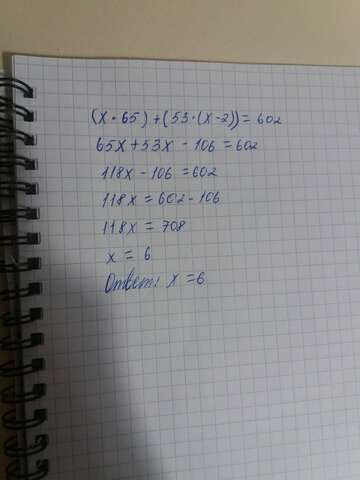 (x · 65) + (53 · (x - 2)) = 602
65x + 53x - 106 = 602
118x - 106 = 602
118x = 602 - 106
118x = 708
x = 6
Ответ: x = 6